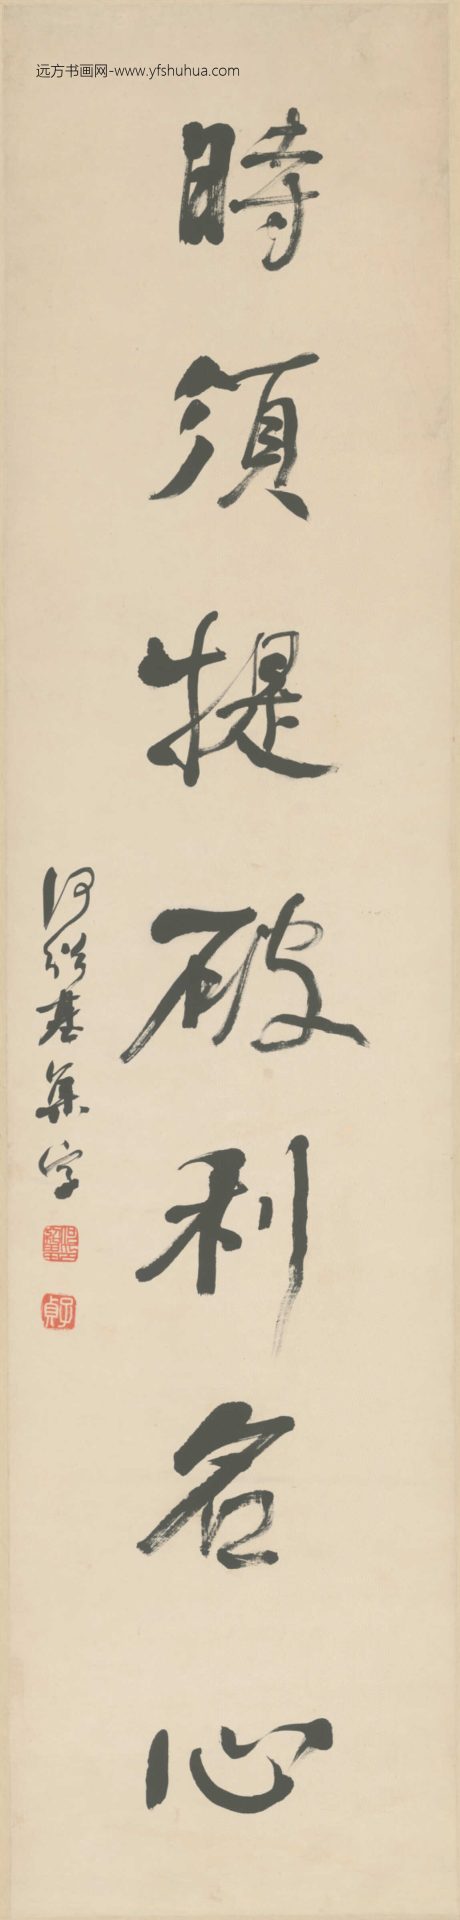 远方书画网-www.yfshuhua.com
時須提破利名心
何紹基集字
子貞